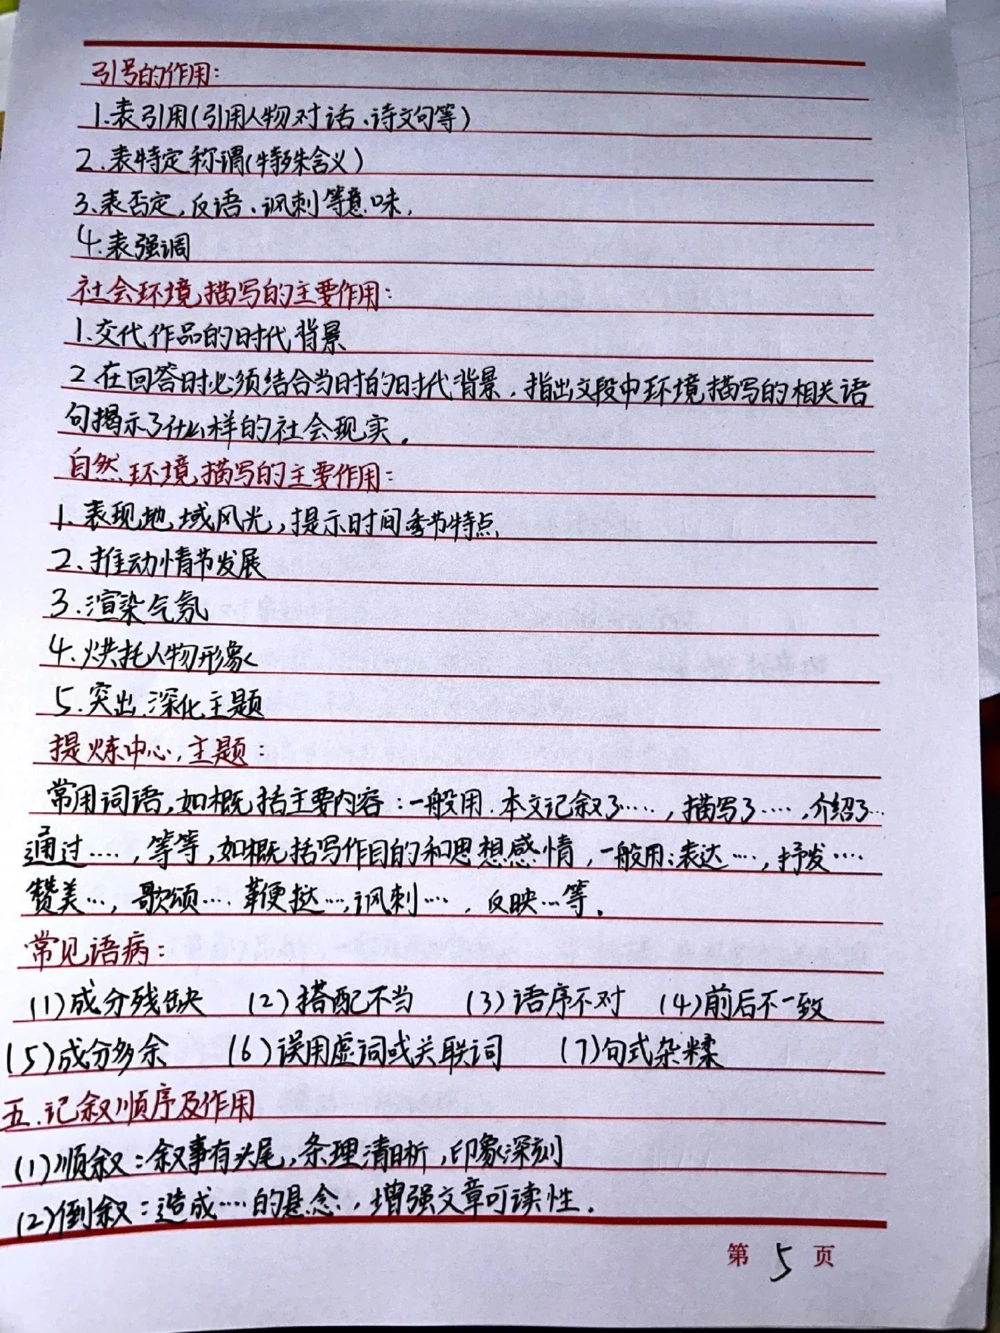 引号的作用：
1.表引用(引用人物对话、诗文句等)
2.表特定称谓(特殊含义)
3.表否定,反语、讽刺等意味,
4.表强调
社会环境描写的主要作用：
1.交代作品的时代背景
2.在回答时必须结合当时的时代背景,指出文段中环境描写的相关语
句揭示了什么样的社会现实.
自然环境描写的主要作用：
1.表现地域风光,提示时间季节特点,
2.推动情节发展
3.渲染气氛
4.烘托人物形象
5.突出深化主题
提炼中心,主题：
常用词语,如概括主要内容：一般用.本文记叙了……,描写了……,介绍了…
通过……,等等,如概括写作目的和思想感情,一般用：表达……,抒发……
赞美…,歌颂…鞭挞…,讽刺…,反映…等.
常见语病：
(1)成分残缺 (2)搭配不当 (3)语序不对 (4)前后不一致
(5)成分多余 (6)误用虚词或关联词 (7)句式杂糅
五.记叙顺序及作用
(1)顺叙：叙事有头尾,条理清晰,印象深刻
(2)倒叙：造成……的悬念,增强文章可读性.
第 5 页